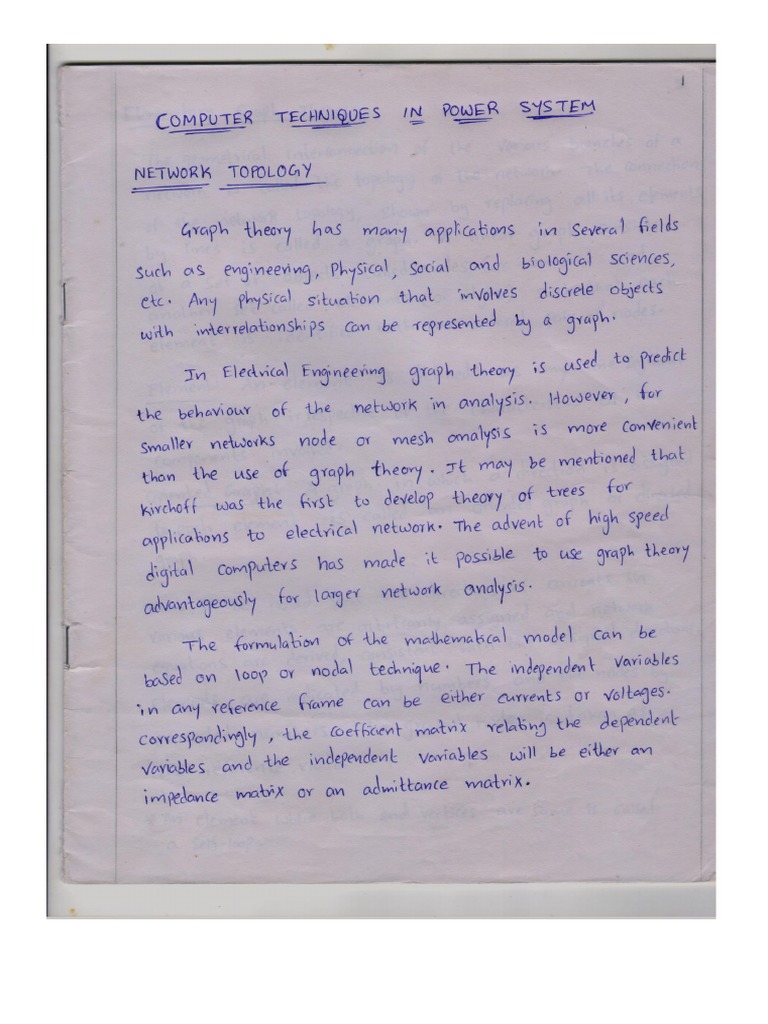 1
COMPUTER TECHNIQUES IN POWER SYSTEM
NETWORK TOPOLOGY
Graph theory has many applications in several fields
such as engineering, Physical, Social and biological sciences,
etc. Any physical situation that involves discrete objects
with interrelationships can be represented by a graph.
In Electrical Engineering graph theory is used to predict
the behaviour of the network in analysis. However, for
smaller networks node or mesh analysis is more convenient
than the use of graph theory. It may be mentioned that
kirchoff was the first to develop theory of trees for
applications to electrical network. The advent of high speed
digital computers has made it possible to use graph theory
advantageously for larger network analysis.
The formulation of the mathematical model can be
based on loop or nodal technique. The independent variables
in any reference frame can be either currents or voltages.
correspondingly, the coefficient matrix relating the dependent
variables and the independent variables will be either an
impedance matrix or an admittance matrix.